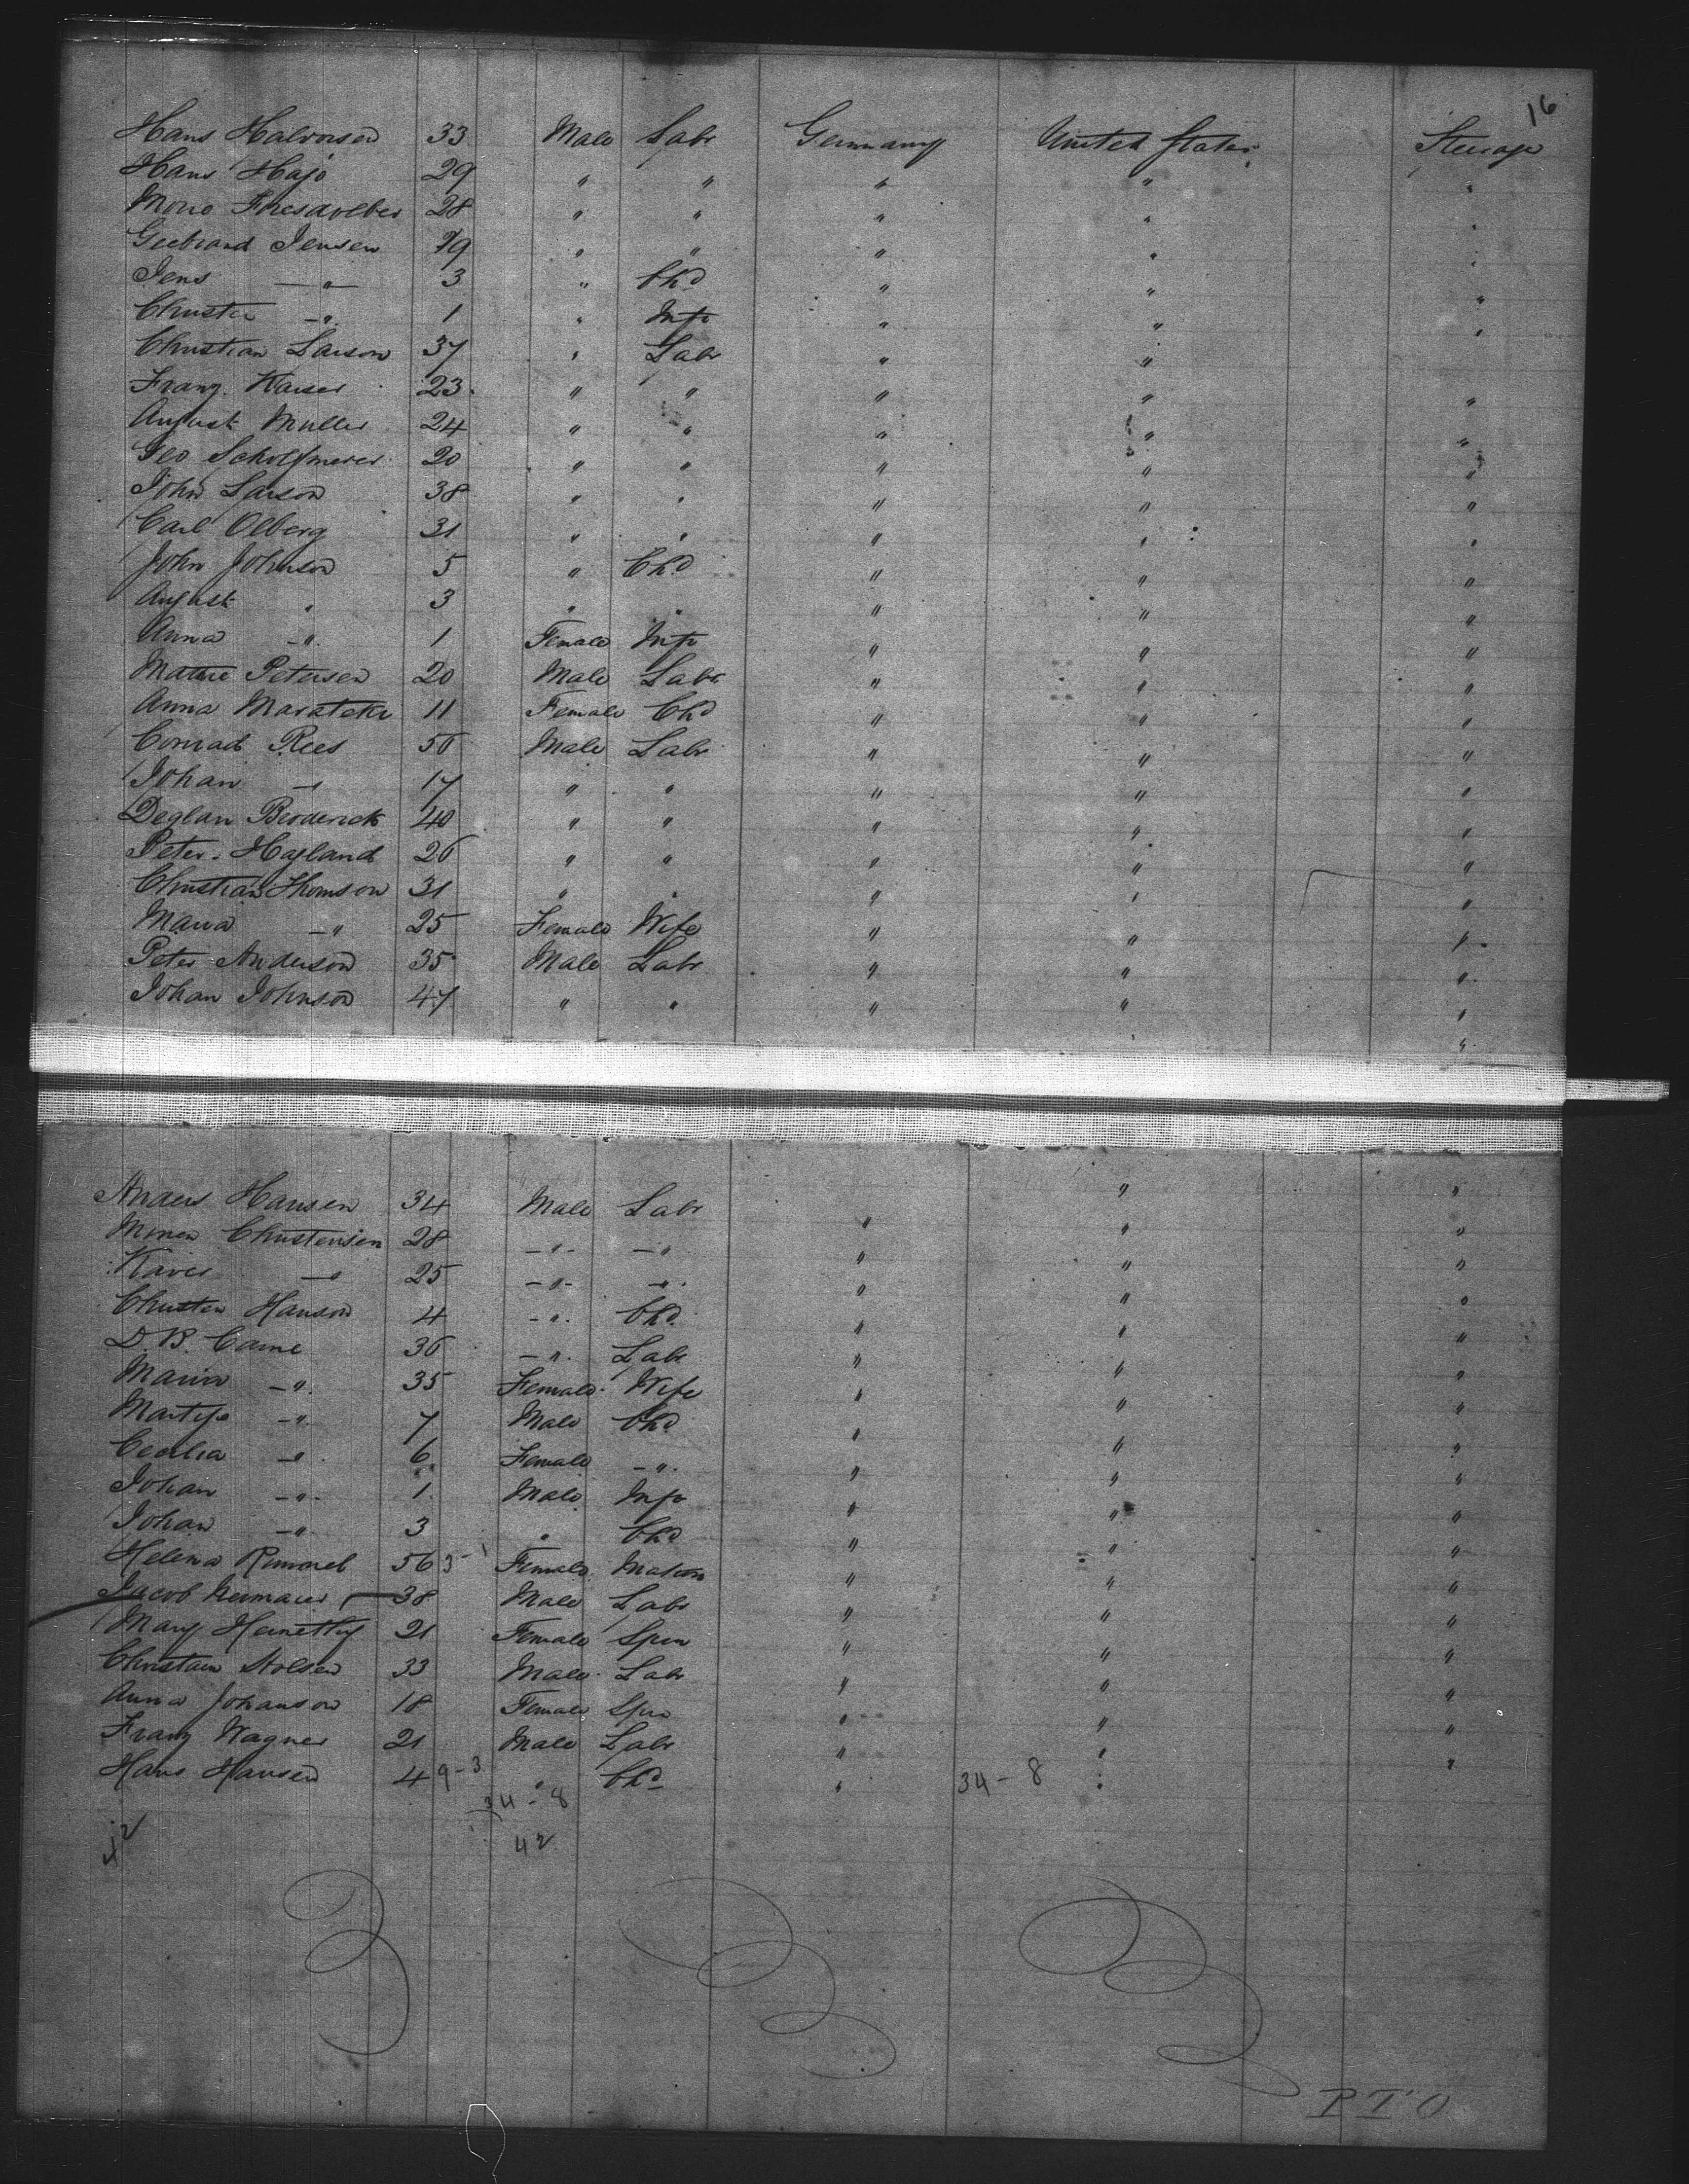 16
Hans Halvorsen 33 Male Labr Germany United States Steerage
Hans Hajo 29 " " " " "
28 " " " " "
Jensen " " " " "
Jens —"— 3 " Chd " " "
Christen —" 1 " Inft " " "
Christian Larson 37 " Labr " " "
Franz Kaiser 23 " " " " "
August Muller 24 " " " " "
Geo 20 " " " " "
John Larson 38 " " " " "
Carl Olberg 31 " " " " "
John Johnson 5 " Chd " " "
August " 3 " " " " "
Anna —" 1 Female Inft " " "
Petersen 20 Male Labr " " "
Anna 11 Female Chd " " "
Conrad Rees 50 Male Labr " " "
Johan —" 17 " " " " "
Deglan Broderick 40 " " " " "
Peter Hayland 26 " " " " "
Christian Thomson 31 " " " " "
Maria —" 25 Female Wife " " "
Peter Anderson 35 Male Labr " " "
Johan Johnson 47 " " " " "
Anders Hansen 34 Male Labr " " "
Christensen 28 —"— —" " " "
—" 25 —"— —" " " "
Christen Hanson 4 —" Chd " " "
D. B. Came 36 —" Labr " " "
Maria —" 35 Female Wife " " "
—" 7 Male Chd " " "
Cecilia —" 6 Female —" " " "
Johan —" 1 Male Inft " " "
Johan —" 3 " Chd " " "
Helena 56 Female Matron " " "
Jacob 38 Male Labr " " "
Mary 21 Female Spin " " "
33 Male Labr " " "
Anna Johanson 18 Female Spin " " "
Franz Wagner 21 Male Labr " " "
Hans Hansen 4 9-3 " Chd " 34-8 "
34-8
42
P T O